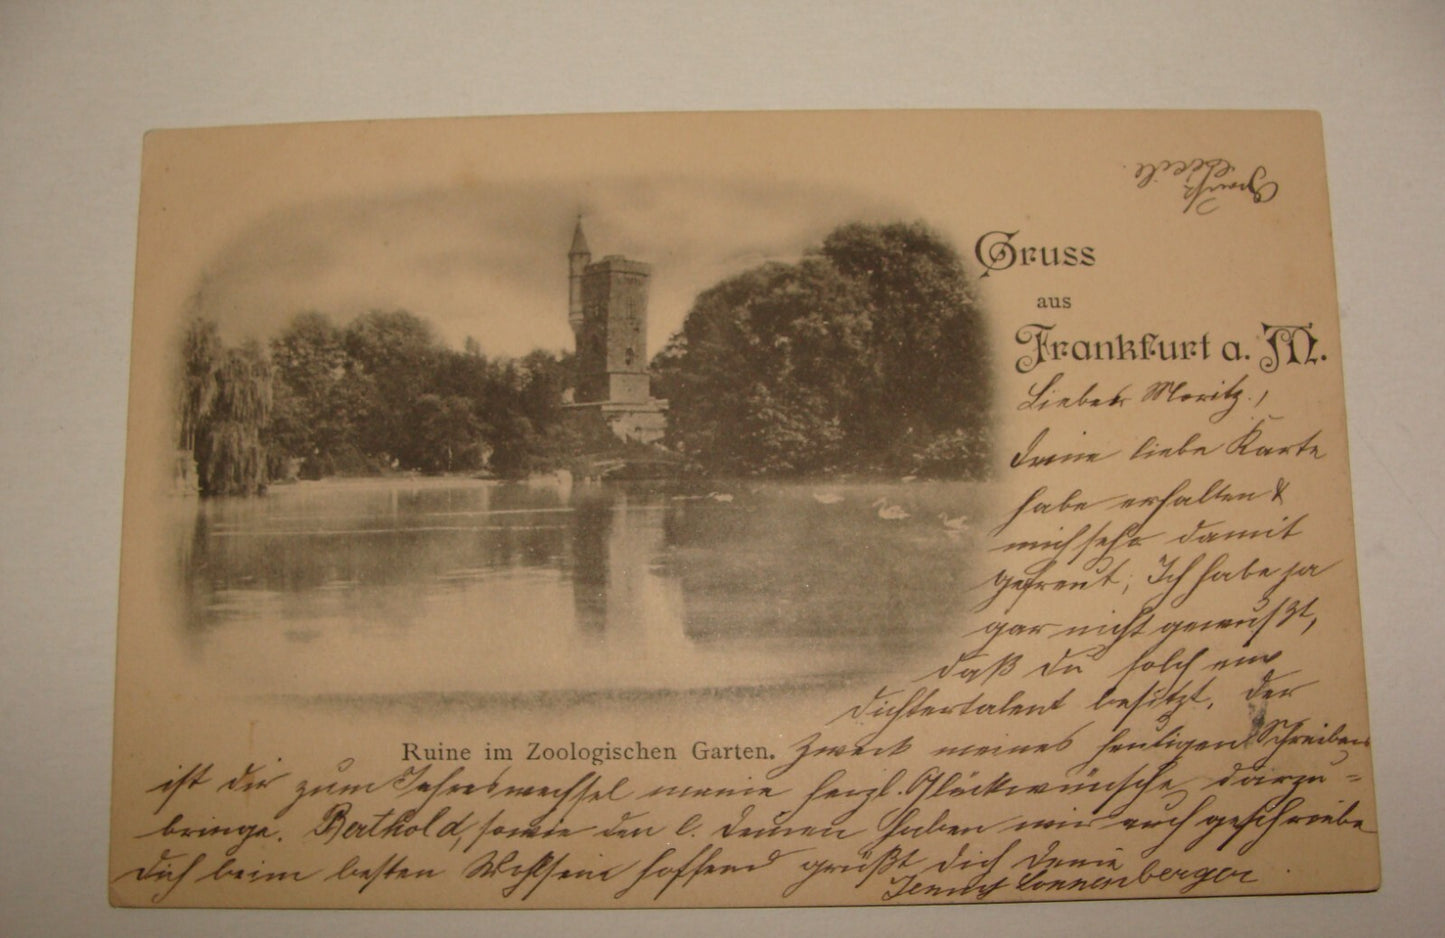 Gruss
aus
Frankfurt a. M.
Lieber Moritz!
Deine liebe Karte
habe erhalten &
mich sehr damit
gefreut, Ich habe ja
gar nicht gewußt,
daß du solch ein
Dichtertalent besitzt. Der
Ruine im Zoologischen Garten.
Zweck meines heutigen Schreibens
ist dir zum Jahreswechsel meine herzl. Glückwünsche darzu=
bringen. Berthold, sowie den l. Deinen haben wir auch geschrieben
Dich beim besten Wohlsein hoffend grüßt dich Deine
Jenny Sonnenberger
Gruß
Cäcilie